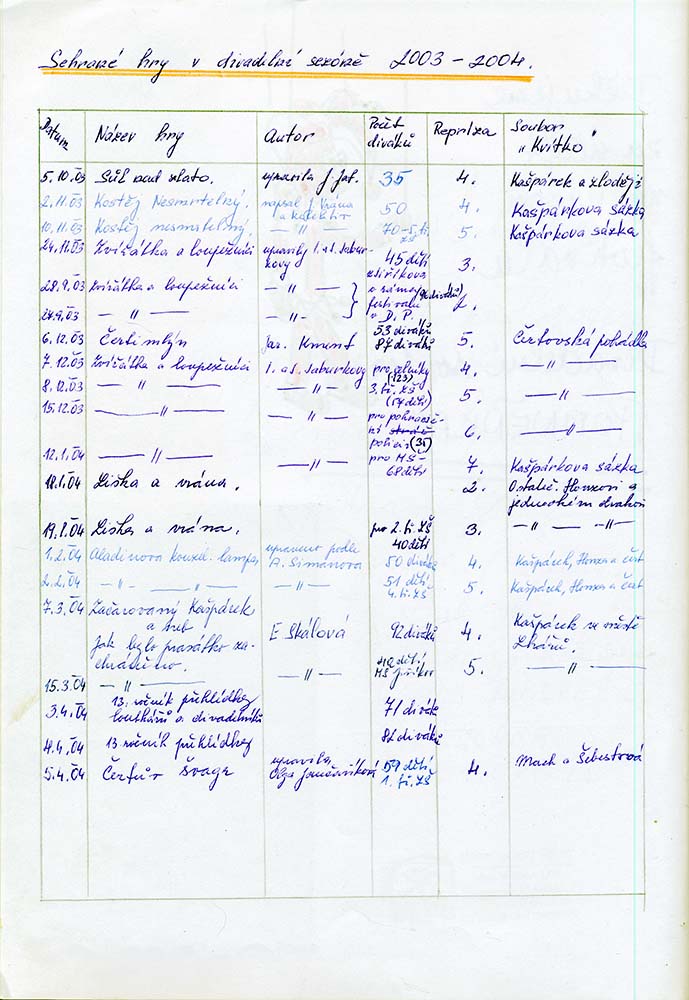 Sehrané hry v divadelní sezóně 2003 - 2004.
Datum Název hry Autor Počet diváků Repríza Soubor "Kvítko"
5.10.03 Sůl nad zlato. upravila J. Jaf. 35 4. Kašpárek a zloději
2.11.03 Kostěj Nesmrtelný. napsal J. Vrána a kolektiv 50 4. Kašpárkova sázka
10.11.03 Kostěj nesmrtelný. — " — 70 - 5. tř. ZŠ 5. Kašpárkova sázka
24.11.03 Zvířátka a loupežníci upravily I. a J. Saburkovy 45 dětí 3.
28.9.03 Zvířátka a loupežníci — " — v rámci festivalu v D.P. (96 diváků) 2.
27.9.03 — " — — " —
6.12.03 Čertí mlýn Jar. Knunt 53 diváků 87 diváků 5. Čertovská pohádka
7.12.03 Zvířátka a loupežníci I. a J. Saburkovy (123) 4. — " —
8.12.03 — " — — " — 3. tř. ZŠ (54 dětí) 5. — " —
15.12.03 — " — — " — pro pohraniční policii (35) 6. — " —
12.1.04 — " — — " — pro MŠ - 68 dětí 7. Kašpárkova sázka
18.1.04 Liška a vrána. 2. O statč. Honzovi a jednookém drakovi
19.1.04 Liška a vrána. pro 2. tř. ZŠ 40 dětí 3. — " — — " —
1.2.04 Aladinova kouzel. lampa upraveno podle A. Simanova 50 diváků 4. Kašpárek, Honza a čert
2.2.04 — " — — " — — " — 51 dětí 4. tř. ZŠ 5. Kašpárek, Honza a čert
7.3.04 Začarovaný Kašpárek aneb Jak bylo prasátko zachráněno. E Skálová 92 diváků 4. Kašpárek ve městě Lhářů.
15.3.04 — " — — " — 40 dětí MŠ Jiříkov 5. — " —
3.4.04 13. ročník přehlídky loutkářů a divadelníků 71 diváků
4.4.04 13. ročník přehlídky 82 diváků
5.4.04 Čertův švagr upravila Olga Jančaříková 59 dětí 1. tř. ZŠ 4. Mach a Šebestová